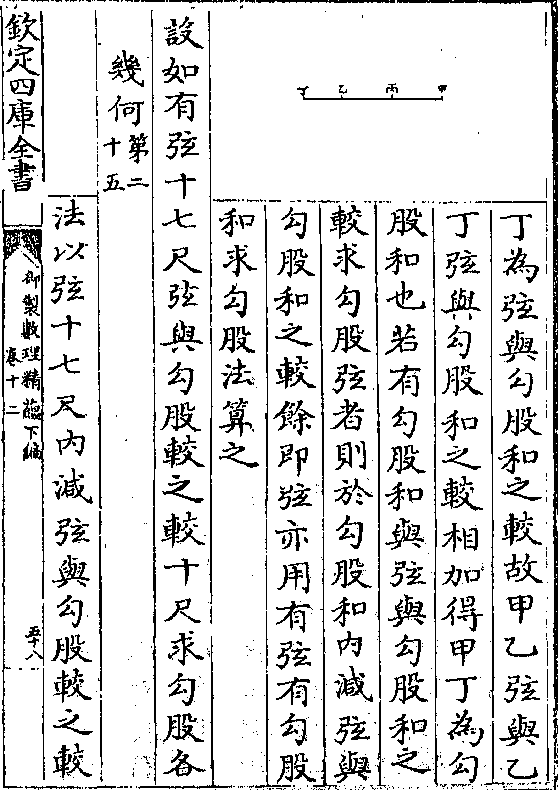 丁乙丙甲
丁為弦與勾股和之較故甲乙弦與乙
丁弦與勾股和之較相加得甲丁為勾
股和也若有勾股和與弦與勾股和之
較求勾股弦者則於勾股和內減弦與
勾股和之較餘即弦亦用有弦有勾股
和求勾股法算之
設如有弦十七尺弦與勾股較之較十尺求勾股各
幾何第二
十五
法以弦十七尺內減弦與勾股較之較
欽定四庫全書
御製數理精蘊下編
卷十二
五十八